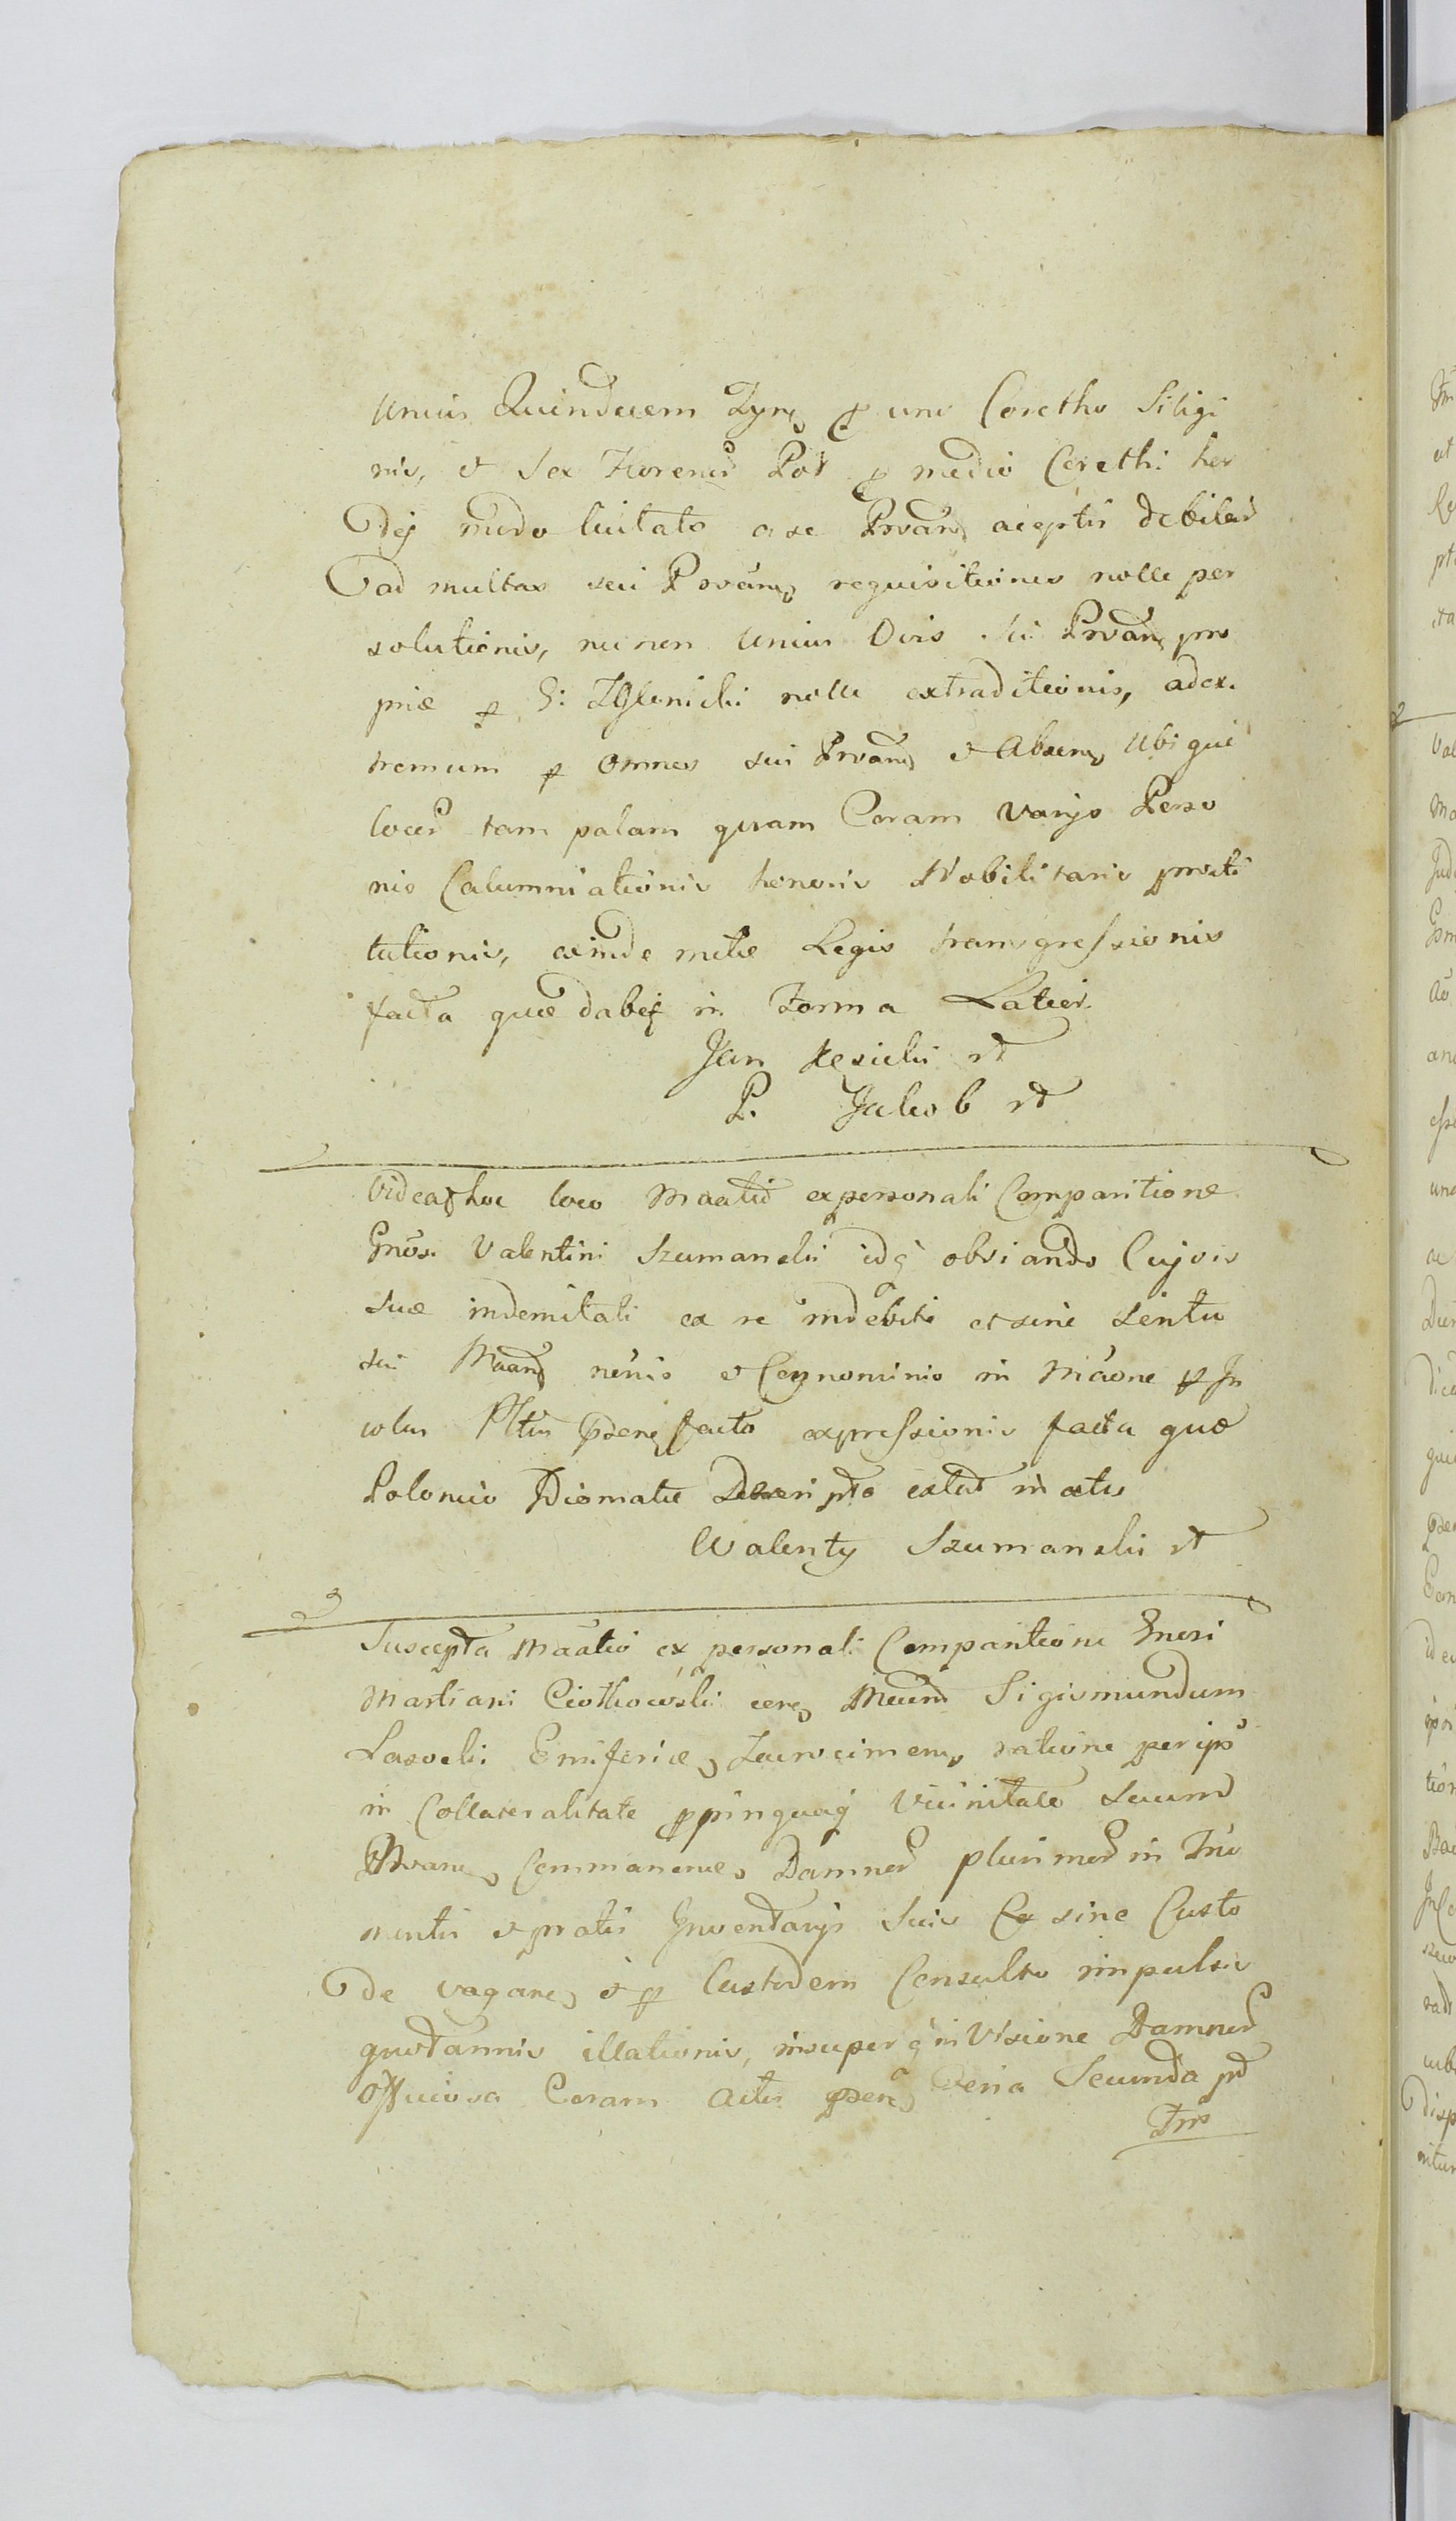 unius Quindecem Tynf p uno Coretho Siligi
nis, et Sex Florenis Pol p medio Corethi hor
dej modo licitato a se Prvan aceptis debilis
ad multas sui Prvan requisitiones nolle per
solutionis, nec non unius Ovis sui Prvan pro
priæ p G: Zglenicki nolle extraditionis, adex.
tremum p omnes sui Prvan et Absen Ubi que
locor tam palam quam Coram varijs Perso
nis Calumniationis honoris Nobilitaris prosti
tutionis, exinde metæ Legis transgressionis
facta quæ dabej in Forma Latior.
Jan Kęsicki
P. Jakob
Videat hoc loco Maatio expersonali Comparitione
Gnosi Valentini Szumanski idq obviando Cujvis
suæ indemitati ex re indebiti et sine Sentu
sui Maan nenis et Cognominis in Maone p In
colas Pltis psens facto expressionis facta quæ
Polonico Idiomate Descripto extat in actis
Walenty Szumanski
Suscepta Maatio ex personali Comparitione Gnesi
Martiani Ciotkowski cern Maun Sigismundum
Lasocki ratione per ipsu
in Collateralitate ppinquaq Vicinitate Secum
Prvan Commanen Damnor plurimor in Fru
mentis et pratis Inventarijs Suis Ex sine Custo
de vagan et p Custodem Consulto impulsis
quotannis illationis, insuper q in Visione Damnor
Officiosa Coram Actis psen feria Secunda pt
Fris